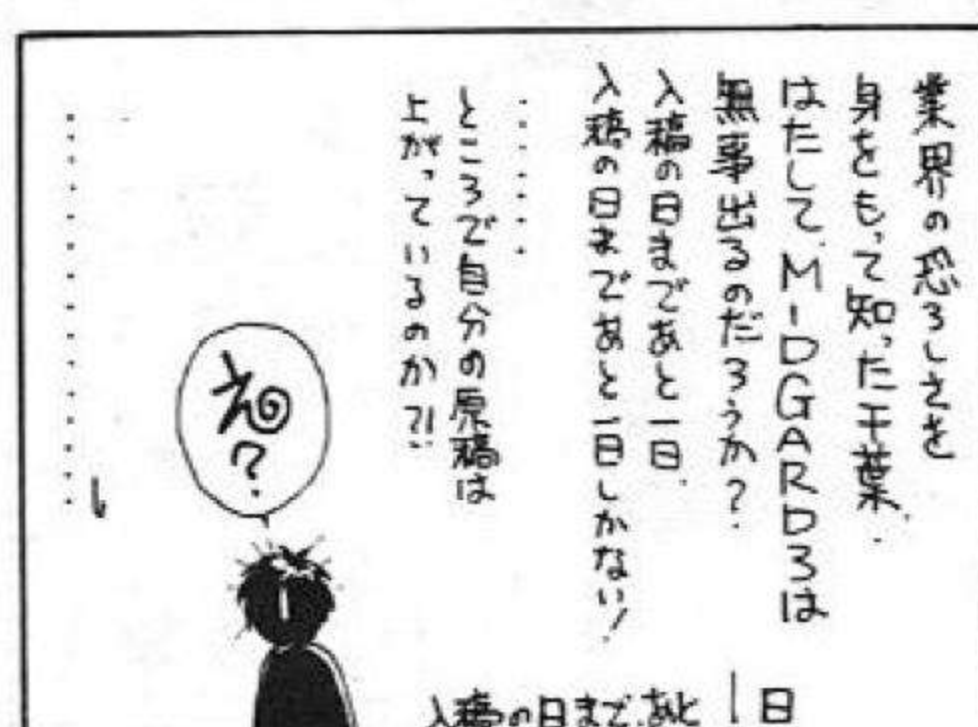 業界の恐ろしさを
身をもって知った千葉.
はたして、MIDGARD3は
無事出るのだろうか?
入稿の日まであと一日.
入稿の日まであと一日しかない!
………
ところで自分の原稿は
上がっているのか?!
えっ?
入稿の日まで、あと一日